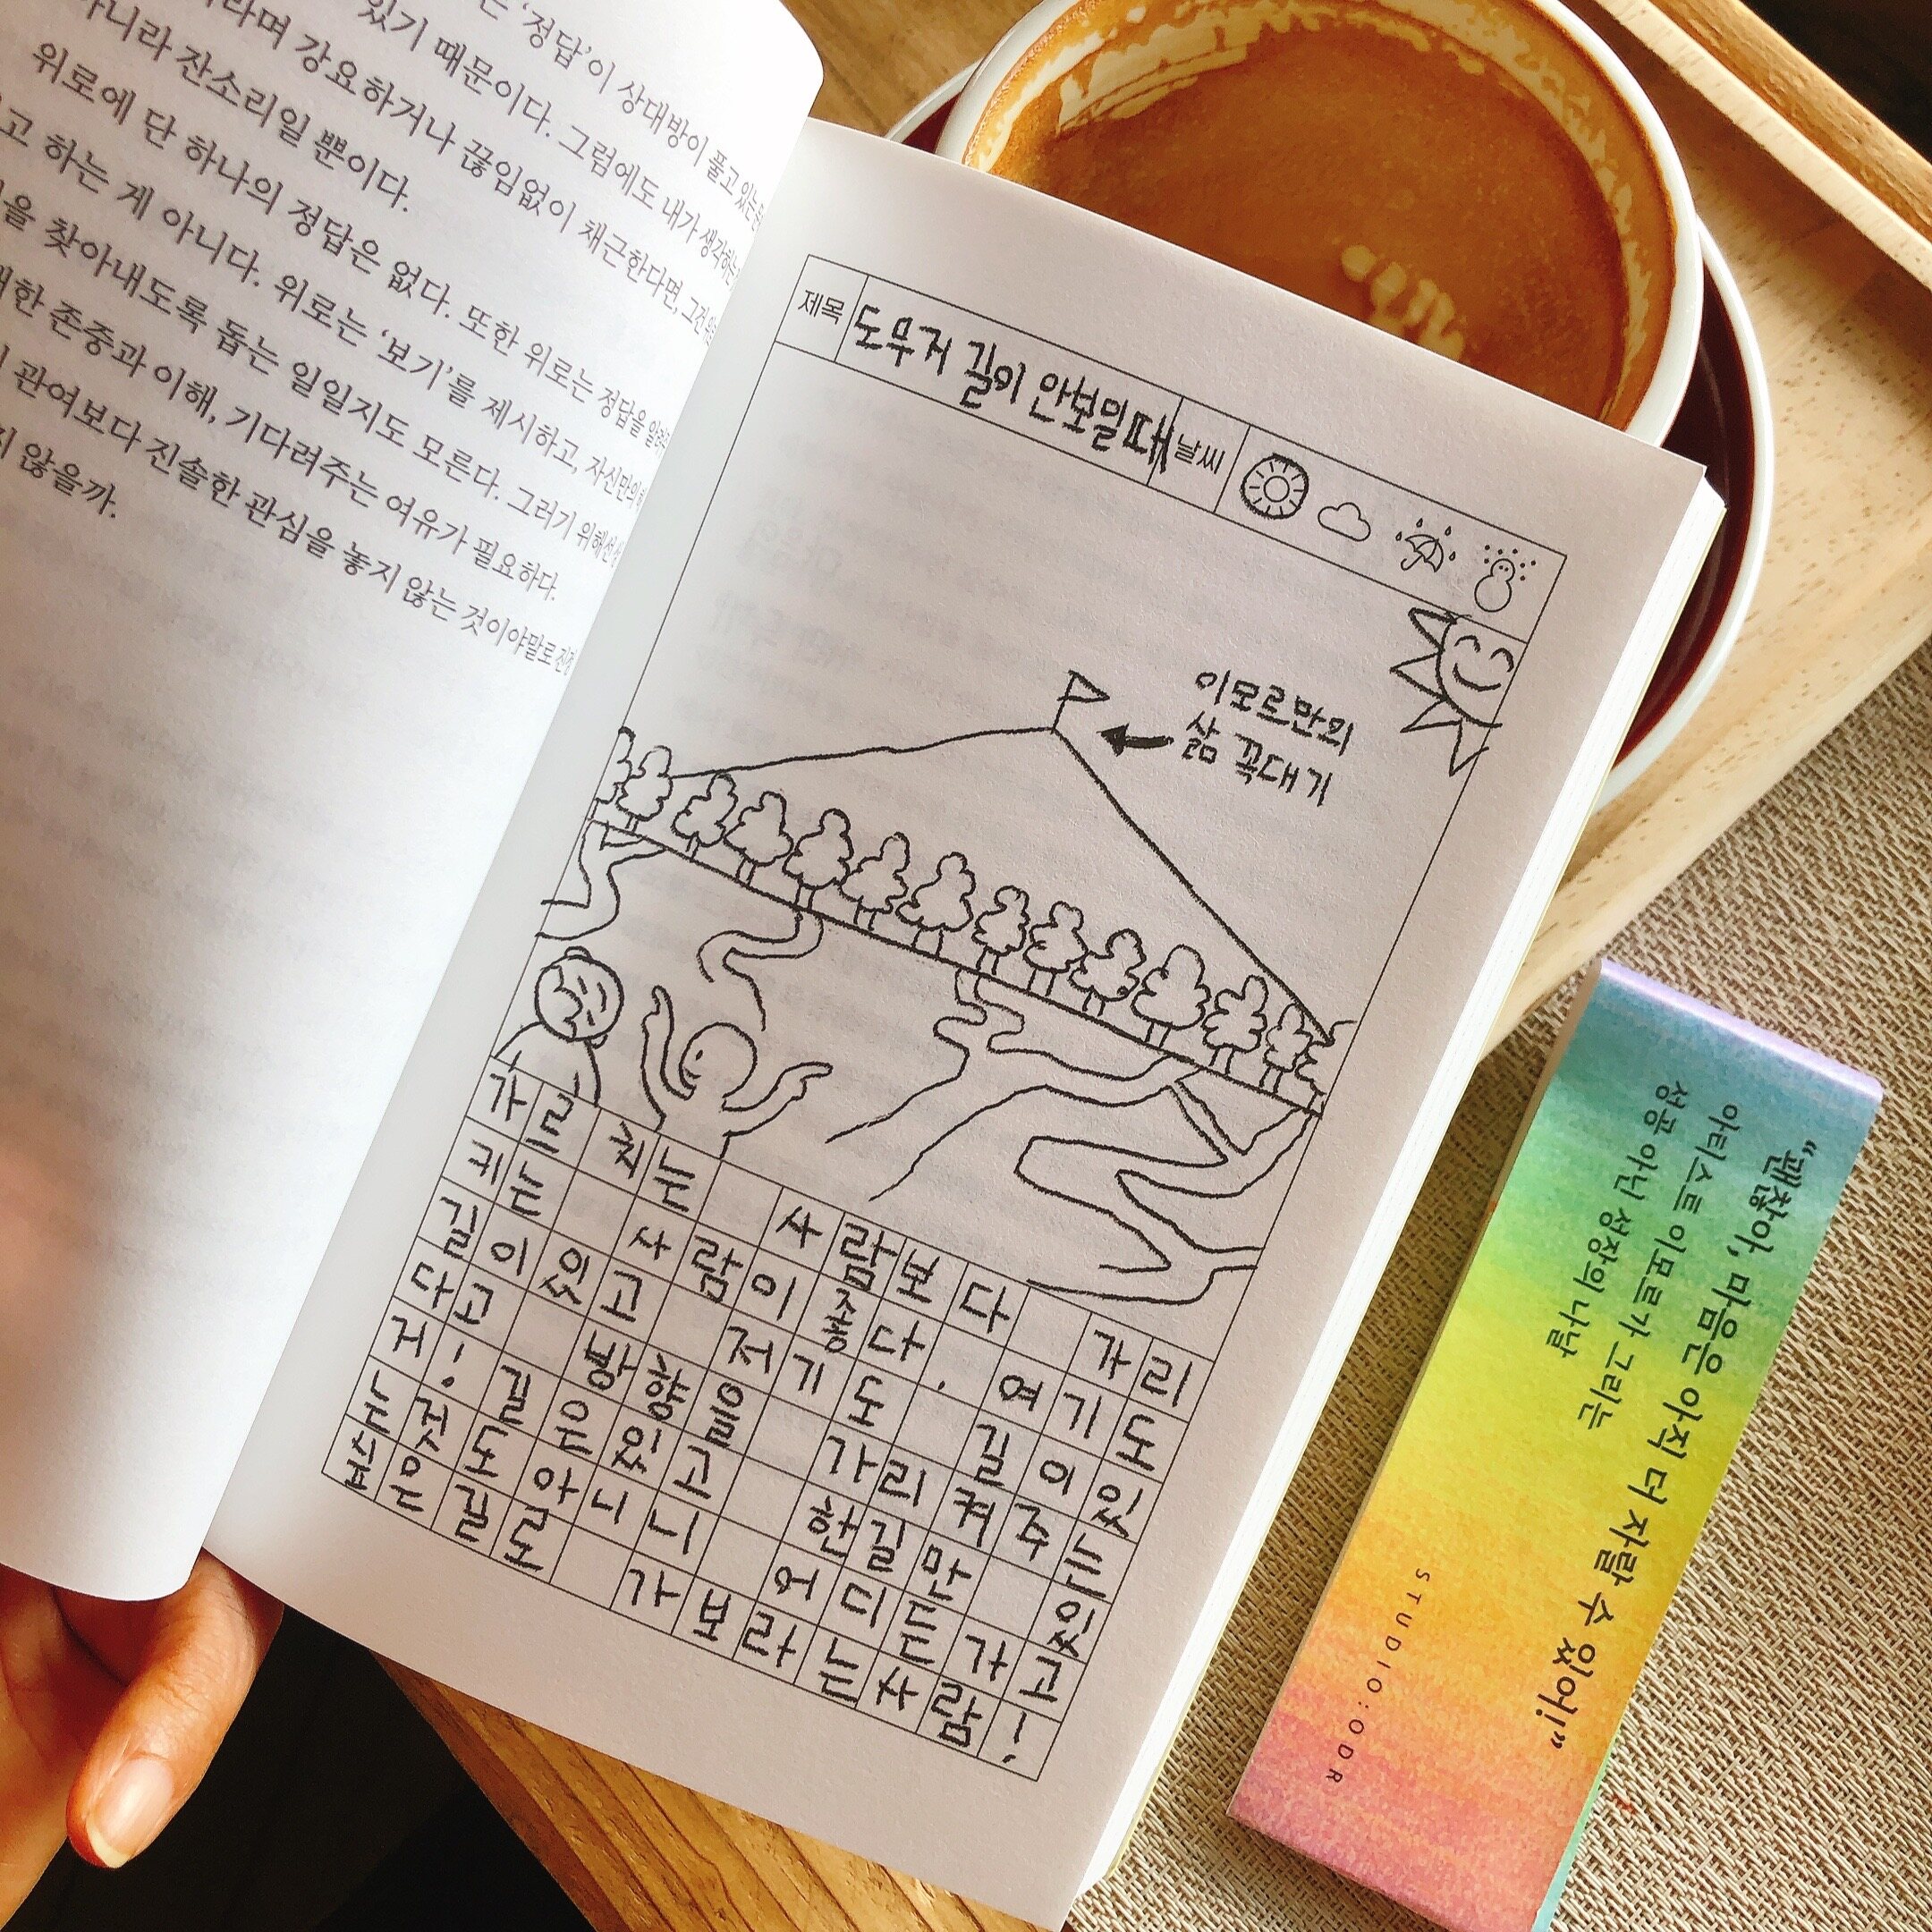 는 '정답'이 상대방이 풀고 있는
있기 때문이다. 그럼에도 내가 생각하는
라며 강요하거나 끊임없이 채근한다면, 그건
아니라 잔소리일 뿐이다.
위로에 단 하나의 정답은 없다. 또한 위로는 정답을
고 하는 게 아니다. 위로는 '보기'를 제시하고, 자신만의
을 찾아내도록 돕는 일일지도 모른다. 그러기 위해선
대한 존중과 이해, 기다려주는 여유가 필요하다.
관여보다 진솔한 관심을 놓지 않는 것이야말로
지 않을까.
제목 도무거 길이 안보일때 날씨
이모르만의
삶 꼭대기
가르치는 사람보다 가리
키는 사람이 좋다. 여기도
길이있고 저기도 길이있
다고 방향을 가리켜주는
거! 길은있고 한길만 있
는것도아니니 어디든가고
싶은길로 가보라는사람!
“괜찮아, 마음은 아직 더 자랄 수 있어!”
아티스트 이모르가 그리는
성공 아닌 성장의 나날
STUDIO:ODR